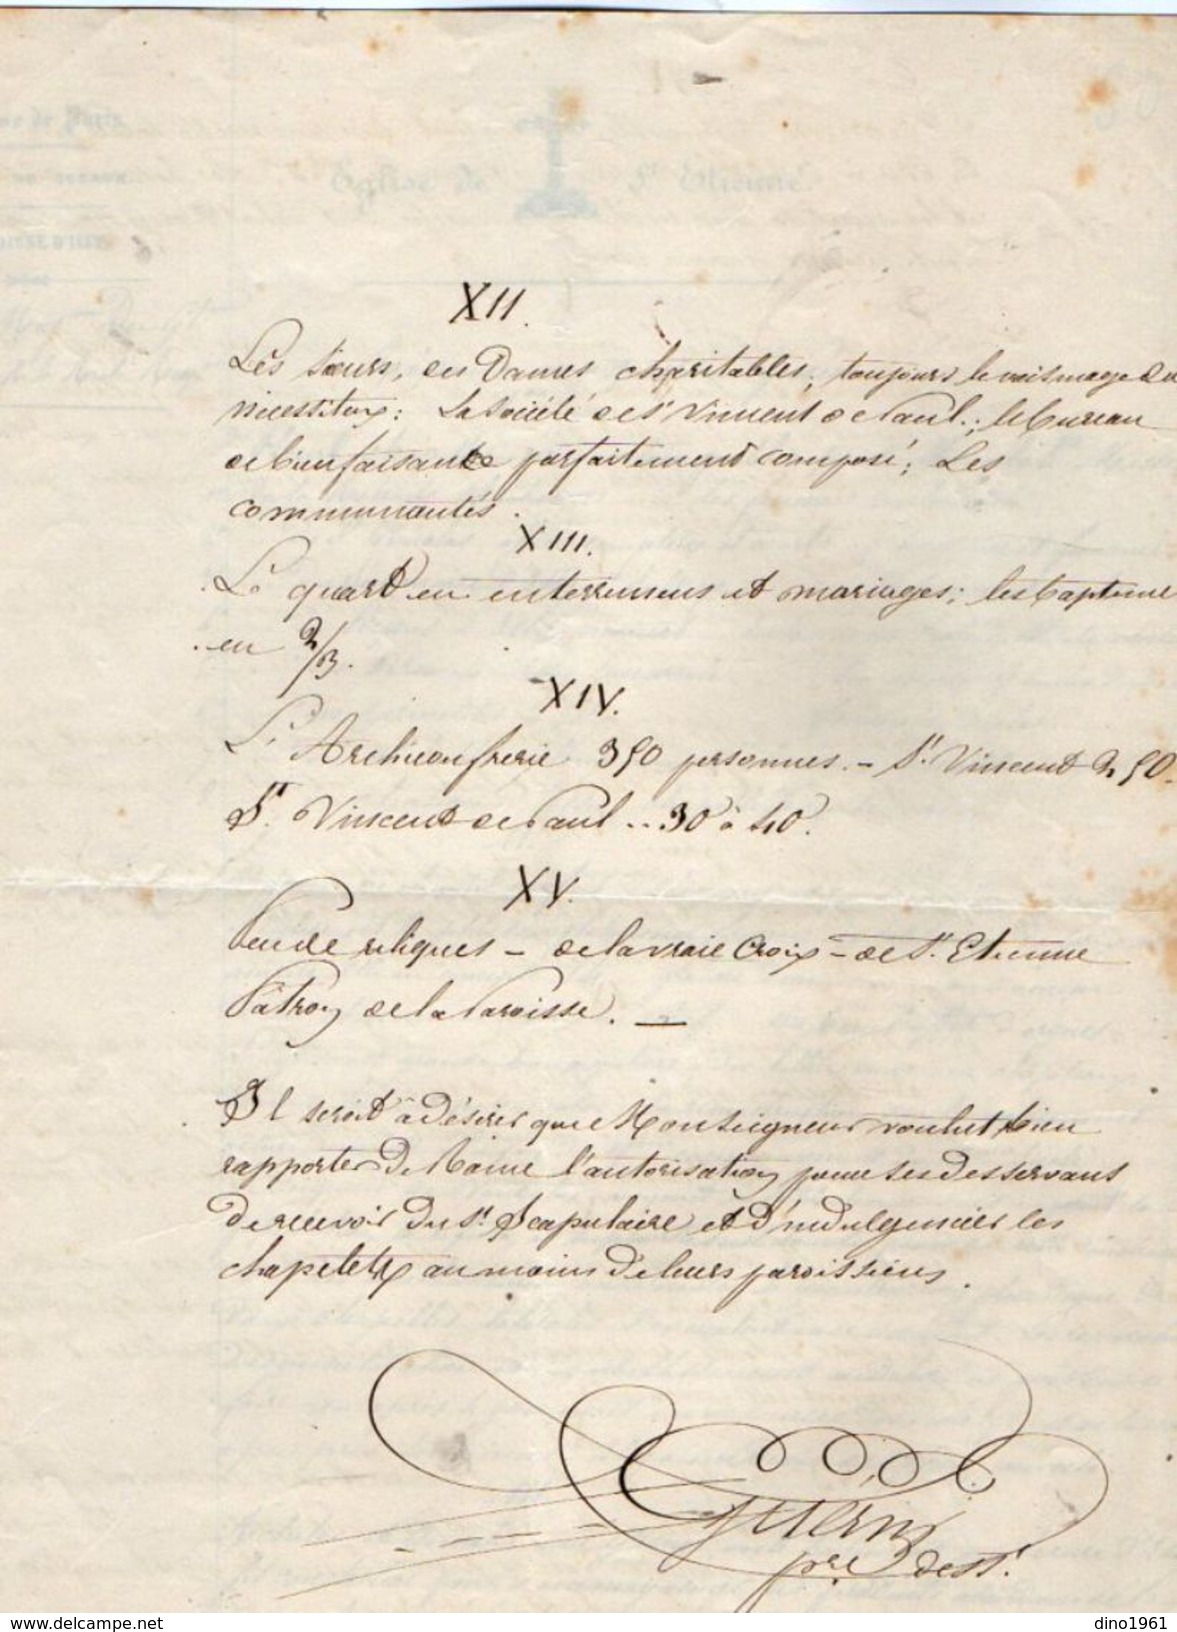 Eglise de St Etienne.
XII.
Les sœurs, des Dames charitables, toujours le voisinage de
nécessiteux: La société de St Vincent de Paul.; le bureau
de bienfaisance parfaitement composé; Les
communautés.
XIII.
Le quart en enterremens et mariages; les baptême
en 2/3.
XIV.
L'Archiconfrerie 350 personnes. - St. Vincent 250.
St. Vincent de Paul .. 30 à 40.
XV.
Peu de reliques - de la vraie Croix - de St. Etienne
Pâtron de la Paroisse. —
Il seroit à désirer que Monseigneur voulut bien
rapporter de Rome l'autorisation pour ses desservans
de recevoir du St. Scapulaire et d'indulgencier les
chapelets au moins de leurs paroissiens.
Guérin
ptre dess.t
dino1961